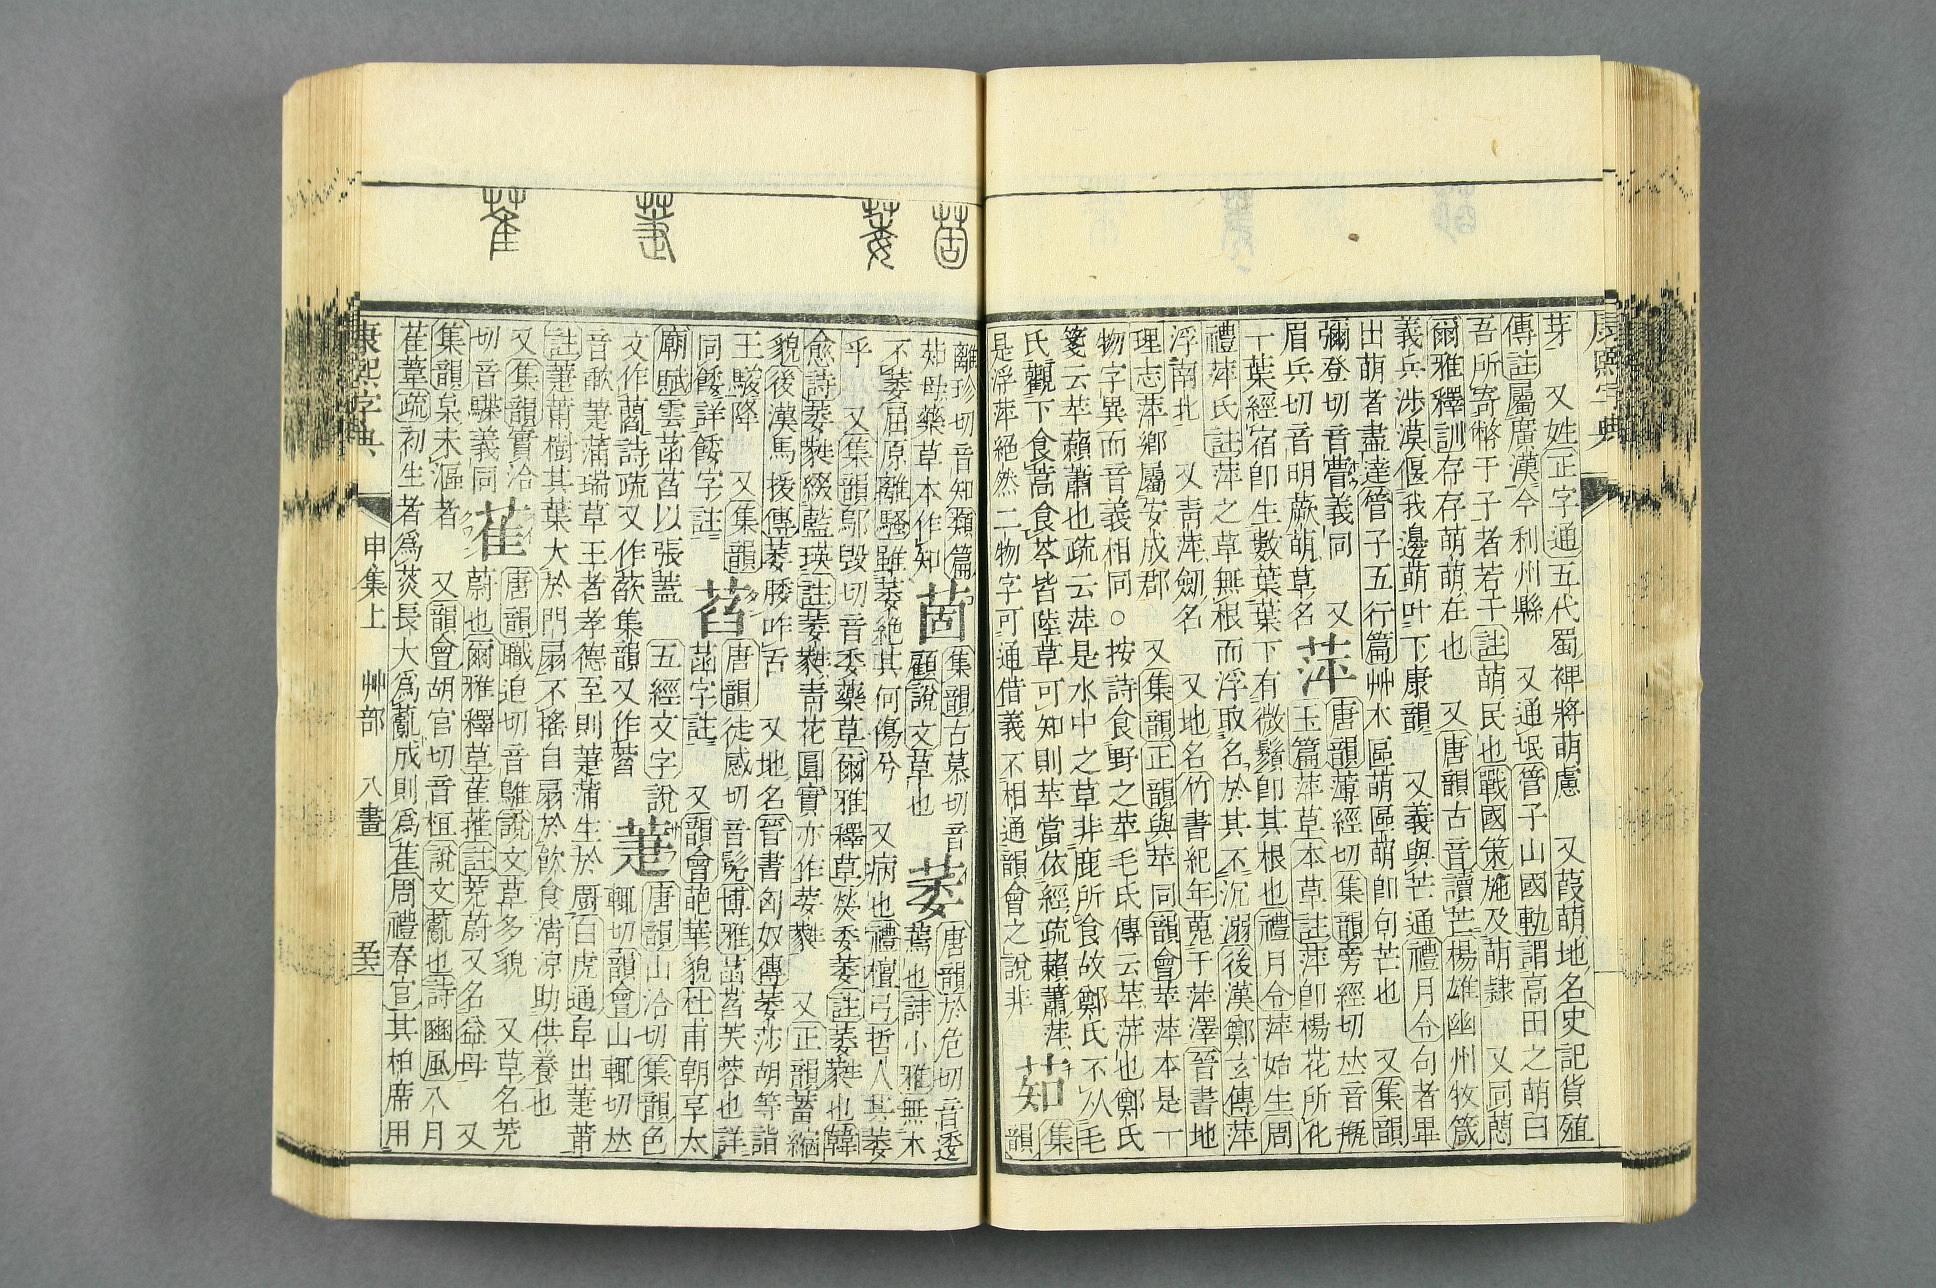 康熙字典
芽 又姓正字通五代蜀裨將萌慮 又葭萌地名史記貨殖
傳註屬廣漢今利州縣 又通氓管子山國軌謂高田之萌曰
吾所寄幣于子者若干註萌民也戰國策施及萌隷 又同蕄
爾雅釋訓存存萌萌在也 又唐韻古音讀芒楊雄幽州牧箴
義兵涉漠偃我邊萌叶下康韻 又義與芒通禮月令句者畢
出萌者盡達管子五行篇艸木區萌區萌卽句芒也 又集韻
彌登切音瞢義同 又
眉兵切音明蕨萌草名
萍
唐韻薄經切集韻旁經切𠀤音缾
玉篇萍草本草註萍卽楊花所化
一葉經宿卽生數葉葉下有微鬚卽其根也禮月令萍始生周
禮萍氏註萍之草無根而浮取名於其不沉溺後漢鄭玄傳萍
浮南北 又靑萍劒名 又地名竹書紀年蒐于萍澤晉書地
理志萍鄉屬安成郡 又集韻正韻與苹同韻會苹萍本是一
物字異而音義相同○按詩食野之苹毛氏傳云苹萍也鄭氏
箋云苹藾蕭也疏云萍是水中之草非鹿所食故鄭氏不从毛
氏觀下食蒿食芩皆陸草可知則苹當依經疏藾蕭萍
是浮萍絶然二物字可通借義不相通韻會之說非
茹
集
韻
離珍切音知類篇
茹母藥草本作知
茴
集韻古慕切音
顧說文草也
萎
唐韻於危切音逶
蔫也詩小雅無木
不萎屈原離騷雖萎絶其何傷兮 又病也禮檀弓哲人其萎
乎 又集韻鄔毀切音委藥草爾雅釋草熒委萎註萎蕤也韓
愈詩萎蕤綴藍瑛註萎蕤靑花圓實亦作葳蕤 又正韻蓄縮
貌後漢馬援傳萎腇咋舌 又地名晉書匈奴傳萎莎胡等詣
王駿降 又集韻
同餧詳餧字註
萏
唐韻徒感切音髧博雅菡萏芙蓉也詳
菡字註 又韻會葩華貌杜甫朝享太
廟賦雲菡萏以張蓋 五經文字說
文作藺詩疏又作菼集韻又作萫
萐
唐韻山洽切集韻色
輒切韻會山輒切𠀤
音歃萐蒲瑞草王者孝德至則萐蒲生於廚白虎通阜出萐莆
註萐莆樹其葉大於門扇不搖自扇於飮食淸涼助供養也
又集韻實洽
切音䮜義同
萑
唐韻職追切音騅說文草多貌 又草名茺
蔚也爾雅釋草萑蓷註茺蔚又名益母 又
集韻枲木漚者 又韻會胡官切音桓說文薍也詩豳風八月
萑葦疏初生者爲菼長大爲薍成則爲萑周禮春官其柏席用
康熙字典 申集上 艸部 八畫